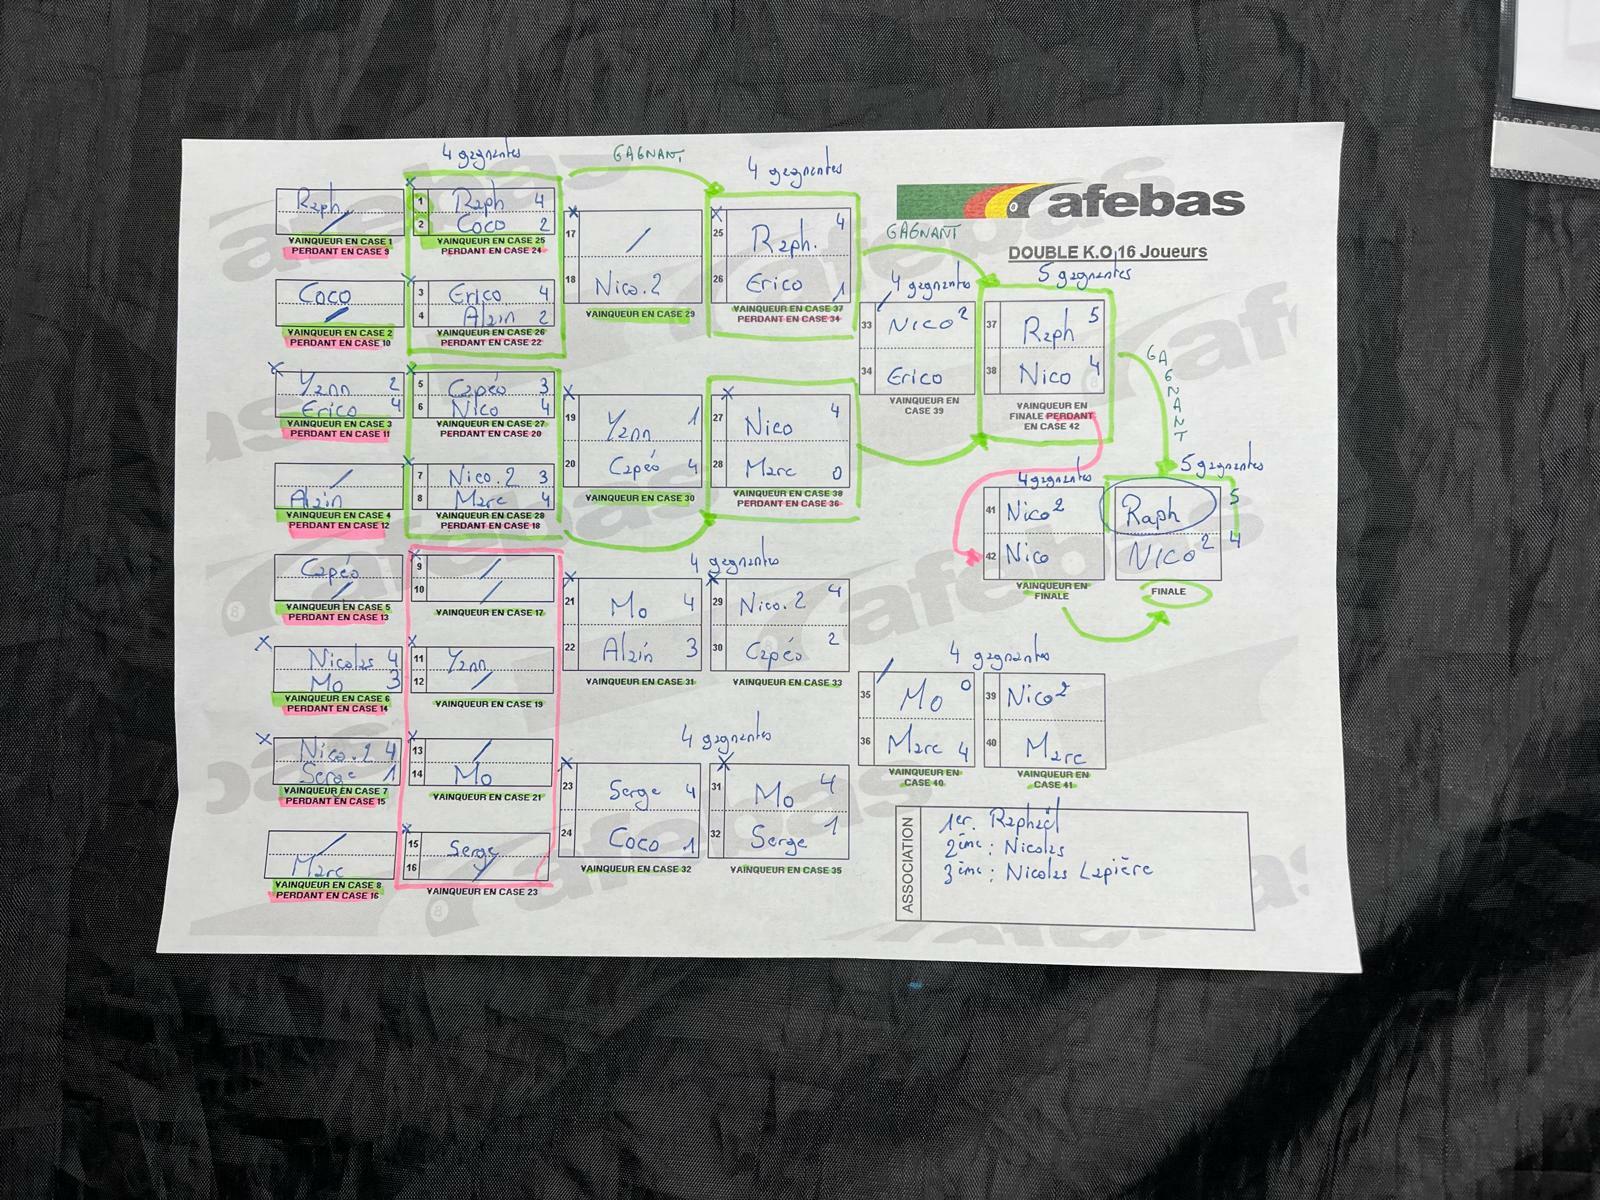 4 gagnantes
GAGNANT
4 gagnantes
afebas
DOUBLE K.O 16 Joueurs
Raph
/
VAINQUEUR EN CASE 1
PERDANT EN CASE 9
Coco
/
VAINQUEUR EN CASE 2
PERDANT EN CASE 10
Yann 2
Erico 4
VAINQUEUR EN CASE 3
PERDANT EN CASE 11
/
Alain
VAINQUEUR EN CASE 4
PERDANT EN CASE 12
Capéo
/
VAINQUEUR EN CASE 5
PERDANT EN CASE 13
Nicolas 4
Mo 3
VAINQUEUR EN CASE 6
PERDANT EN CASE 14
Nico.2 4
Serge 1
VAINQUEUR EN CASE 7
PERDANT EN CASE 15
/
Marc
VAINQUEUR EN CASE 8
PERDANT EN CASE 16
1 Raph 4
2 Coco 2
VAINQUEUR EN CASE 25
PERDANT EN CASE 24
3 Erico 4
4 Alain 2
VAINQUEUR EN CASE 26
PERDANT EN CASE 22
5 Capéo 3
6 Nico 4
VAINQUEUR EN CASE 27
PERDANT EN CASE 20
7 Nico.2 3
8 Marc 4
VAINQUEUR EN CASE 28
PERDANT EN CASE 18
9 /
10 /
VAINQUEUR EN CASE 17
11 Yann
12 /
VAINQUEUR EN CASE 19
13 /
14 Mo
VAINQUEUR EN CASE 21
15 Serge
16 /
VAINQUEUR EN CASE 23
17 /
18 Nico.2
VAINQUEUR EN CASE 29
19 Yann 1
20 Capéo 4
VAINQUEUR EN CASE 30
21 Mo 4
22 Alain 3
VAINQUEUR EN CASE 31
23 Serge 4
24 Coco 1
VAINQUEUR EN CASE 32
25 Raph. 4
26 Erico 1
VAINQUEUR EN CASE 37
PERDANT EN CASE 34
27 Nico 4
28 Marc 0
VAINQUEUR EN CASE 38
PERDANT EN CASE 36
4 gagnantes
29 Nico.2 4
30 Capéo 2
VAINQUEUR EN CASE 33
4 gagnantes
31 Mo 4
32 Serge 1
VAINQUEUR EN CASE 35
GAGNANT
4 gagnantes
33 Nico 2
34 Erico
VAINQUEUR EN
CASE 39
5 gagnantes
37 Raph 5
38 Nico 4
VAINQUEUR EN
FINALE PERDANT
EN CASE 42
GAGNANT
4 gagnantes
41 Nico 2
42 Nico
VAINQUEUR EN
FINALE
5 gagnantes
Raph 5
Nico 2 4
FINALE
4 gagnantes
35 Mo 0
36 Marc 4
VAINQUEUR EN
CASE 40
39 Nico 2
40 Marc
VAINQUEUR EN
CASE 41
ASSOCIATION
1er. Raphaël
2ème : Nicolas
3ème : Nicolas Lapière